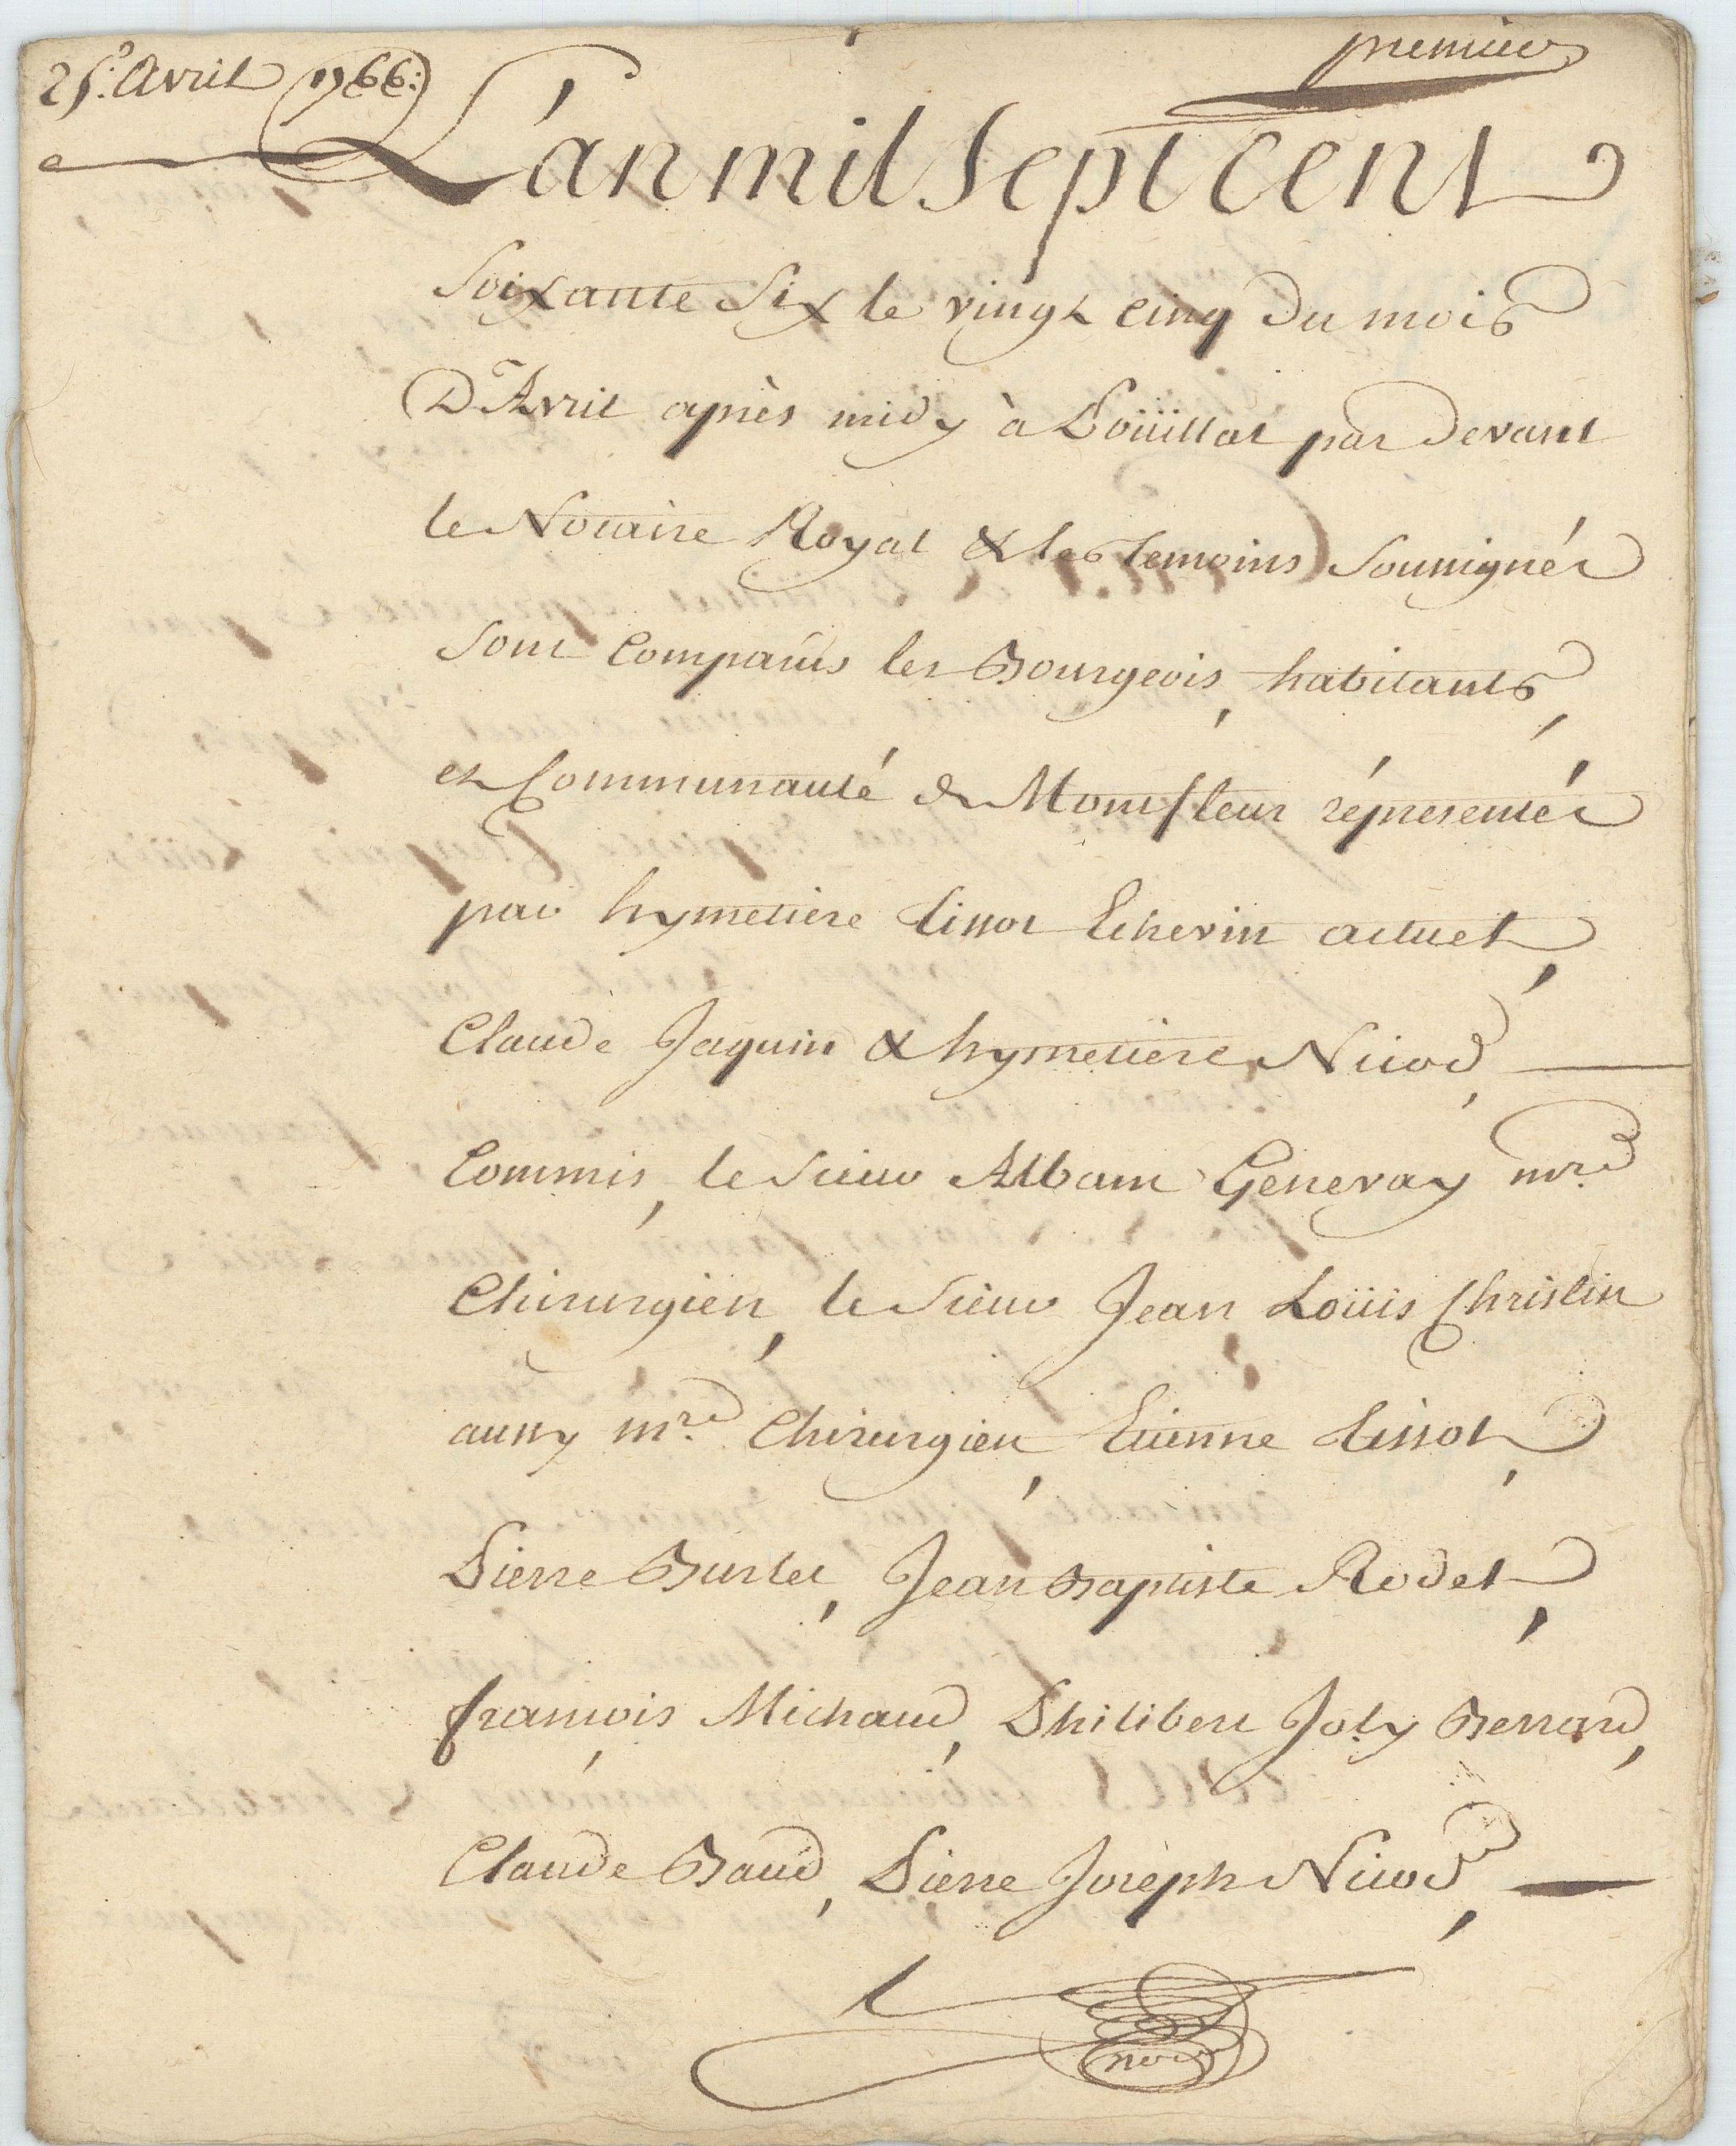 25.e Avril 1766:
premier
L'an mil Sept cent
Soixante Six le vingt cinq du mois
D'Avril après midy à Poüillat par devant
le Notaire Royal & les temoins Soussignés
Sont comparûs les Bourgeois, habitants,
et Communauté de Montfleur réprésentés
par hymetiere Tissot Echevin actuel,
Claude Jaquin & hymetiere Nicod,
Commis, le Sieur Albam Genevay mre
Chirurgien, le Sieur Jean Loüis Christin
aussy mre Chirurgien, Etienne Tissot,
Pierre Burlet, Jean Baptiste Rodet,
françois Michaud, Philibert Joly Berrard,
Claude Baud, Pierre Joseph Nicod,